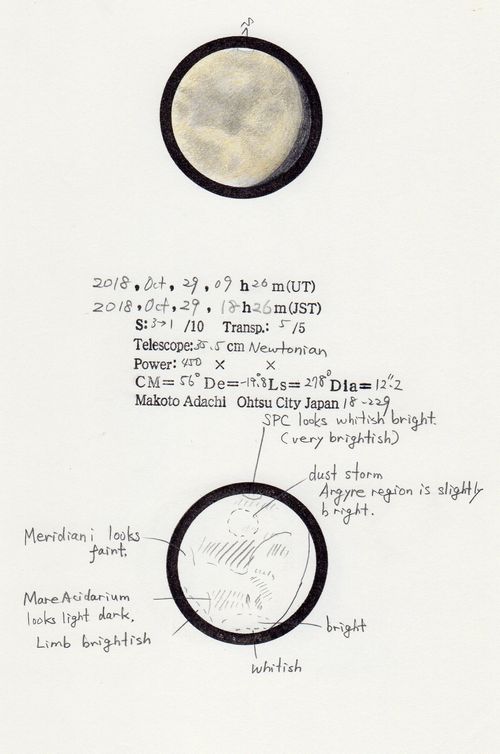 S
2018, Oct, 29, 09 h 26 m (UT)
2018, Oct, 29, 18 h 26 m (JST)
S: 3→1 /10 Transp.: 5 /5
Telescope: 35.5 cm Newtonian
Power: 450 × ×
CM= 56° De=-19.8 Ls= 278° Dia= 12".2
Makoto Adachi Ohtsu City Japan 18-229
SPC looks whitish bright.
(very brightish)
dust storm
Argyre region is slightly
bright.
Meridiani looks
faint.
Mare Acidarium
looks light dark.
Limb brightish
bright
whitish